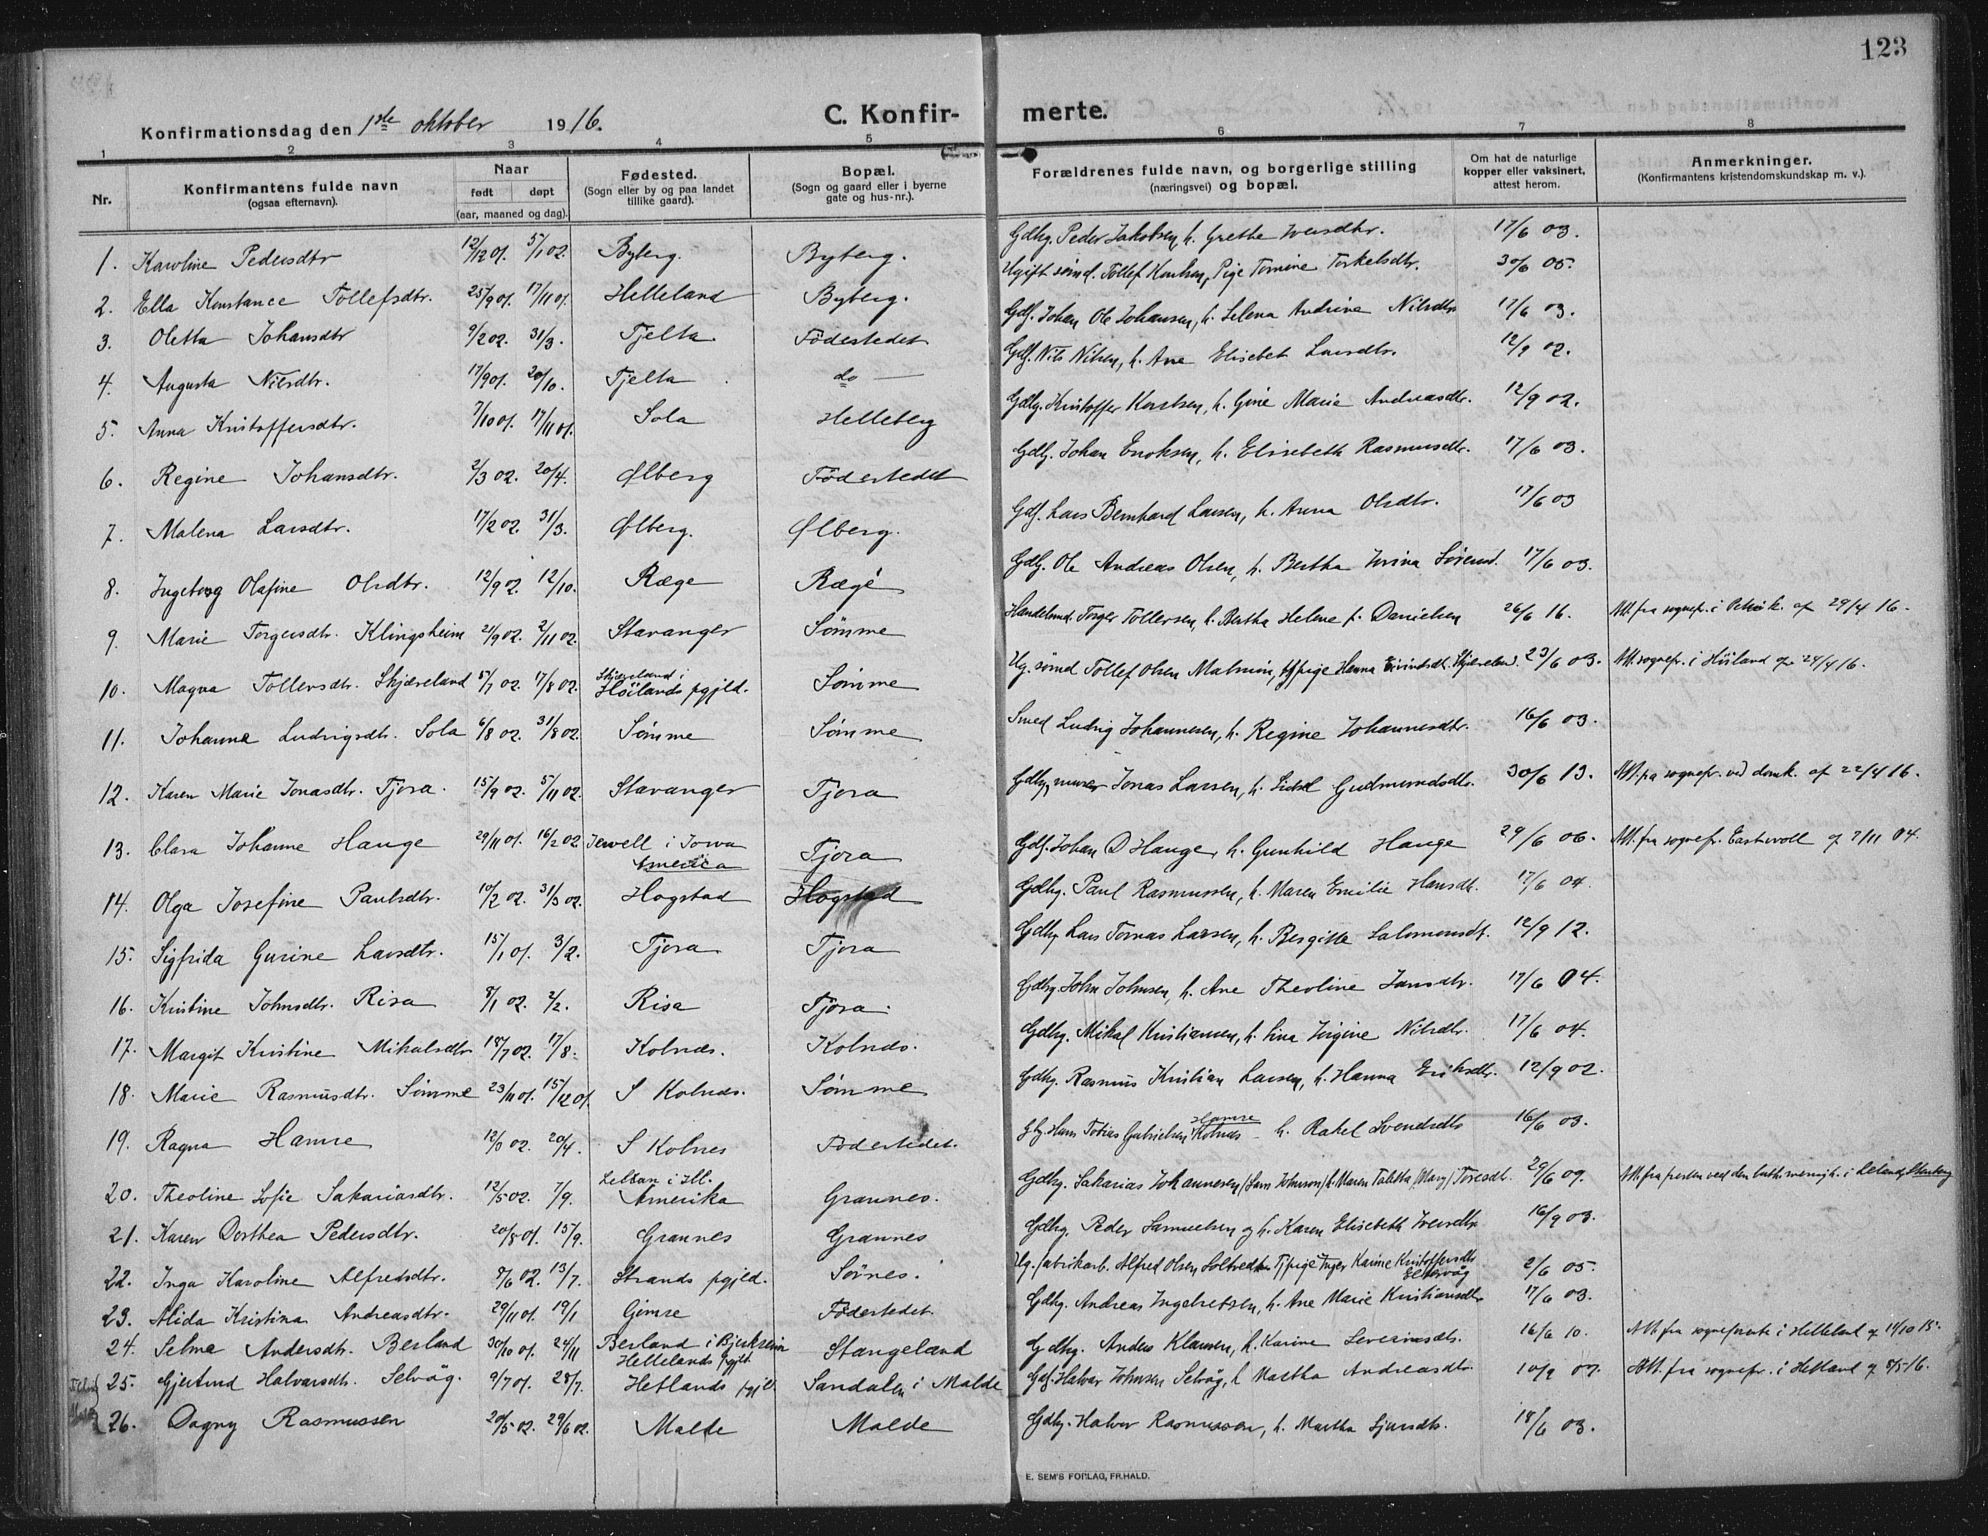 123
Konfirmationsdag den 1ste oktober 1916.
C. Konfirmerte.
1 2 3 4 5 6 7 8
Nr.
Konfirmantens fulde navn
(ogsaa efternavn).
Naar
født døpt
(aar, maaned og dag).
Fødested.
(Sogn eller by og paa landet
tillike gaard).
Bopæl.
(Sogn og gaard eller i byerne
gate og hus-nr.).
Forældrenes fulde navn, og borgerlige stilling
(næringsvei) og bopæl.
Om hat de naturlige
kopper eller vaksinert,
attest herom.
Anmerkninger.
(Konfirmantens kristendomskundskap m. v.).
1. Karoline Pedersdtr 12/12 01. 5/1 02. Byberg. Byberg. Gdbg. Peder Jakobsen, h. Grethe Iversdtr. 17/6 03.
2. Ella Konstance Tollefsdtr. 25/9 01. 17/11 01. Helleland Byberg. Ugift sømd. Tollef Karlsen, Pige Tomine Torkelsdtr. 30/6 05.
3. Oletta Johansdtr 9/2 02. 31/3. Tjelta Födestedet Gdf. Johan Ole Johansen, h. Selena Andrine Nilsdtr. 17/6 03.
4. Augusta Nilsdtr. 17/9 01. 20/10. Tjelta do — Gdf. Nils Nilsen, h. Ane Elisebet Larsdtr. 12/9 02.
5. Anna Kristoffersdtr. 7/10 01. 17/11 01. Sola Helleberg Gdbg. Kristoffer Karlsen, h. Gine Marie Andreasdtr. 12/9 02.
6. Regine Johansdtr. 2/3 02. 20/4. Ølberg Födestedet Gdbg. Johan Enoksen, h. Elisebeth Rasmusdtr. 17/6 03.
7. Malena Larsdtr. 17/2 02. 31/3. Ølberg. Ølberg. Gdf. Lars Bernhard Larsen, h. Anna Olsdtr. 17/6 03
8. Ingeborg Olafine Olsdtr. 12/9 02. 12/10. Ræge Ræge Gdbg. Ole Andreas Olsen, h. Bertha Ivrina Sörensd. 17/6 03.
9. Marie Torgersdtr. Klingsheim 21/9 02. 2/11 02. Stavanger Sömme Handelsmd. Torger Tollersen, h. Bertha Helene f. Danielsen 26/6 16. Att. fra sognepr. i Petrik. af 29/4 16.
10. Magna Tollevsdtr. Skjæveland 5/7 02. 17/8 02. Skjæveland i Höilands pgjld. Sömme Ug. sömd Tollef Olsen Malmin, og pige Hanna Eivindsdt. Skjæveland. 23/6 03. Att. sognepr. i Höiland af 24/4 16.
11. Johanne Ludvigsdtr. Sola 6/8 02. 31/8 02. Sömme Sömme Smed Ludvig Johannesen, h. Regine Johannesdtr. 16/6 03.
12. Karen Marie Jonasdtr. Tjora. 15/9 02. 5/11 02. Stavanger Tjora Gdbg, murer Jonas Larsen, h. Sidsel Gudmundsdtr. 30/6 13. Att. fra sognepr. ved domk. af 22/4 16.
13. Clara Johanne Hauge 29/11 01. 16/2 02 Jewell i Iowa America Tjora Gdf. Johan O Hauge, h. Gunhild Hauge 29/6 06. Att. fra sognepr. Eastvold af 7/11 04.
14. Olga Josefine Paulsdtr. 10/2 02. 31/3 02. Hogstad Hogstad Gdbg. Paul Rasmussen, h. Maren Emilie Hansdt. 17/6 04.
15. Sigfrida Gurine Larsdtr. 15/1 01. 3/2. Tjora Tjora Gdbg Lars Tomas Larsen, h. Bergitte Salomonsdt. 12/9 12.
16. Kristine Johnsdtr. Risa 8/1 02. 2/2. Risa Tjora. Gdbg. John Johnsen, h. Ane Theoline Jansdtr. 17/6 04.
17. Margit Kristine Mikalsdtr 18/7 02. 17/8. Kolnes. Kolnes. Gdbg. Mikal Kristiansen, h. Lina Jorgine Nilsdtr. 17/6 04.
18. Marie Rasmusdtr. Sömme 23/11 01. 15/12 01. S Kolnes. Sömme Gdbg. Rasmus Kristian Larsen, h. Hanna Eriksdtr. 12/9 02.
19. Ragna Hamre 12/3 02. 20/4. S Kolnes Födestedet. Gbg. Hans Tobias Gabrielsen Kolnes Hamre h. Rakel Svendsdtr 16/6 03.
20. Theoline Sofie Sakariasdtr. 12/5 02. 7/9. Leban i Ill. Amerika Grannes. Gdbg. Sakarias Johannesen /Sam Johnson/ h. Maren Tabitha /Mary/ Toresdtr. 29/6 09. Att. fra presten ved den luth. menigh. i Leland,
21. Karen Dorthea Pedersdtr. 20/8 01. 15/9. Grannes Grannes Gdbg. Peder Samuelsen og h. Karen Elisebeth Iversdtr 16/9 03.
22. Inga Karoline Alfredsdtr. 8/6 02. 13/7. Strands pgjld. Sörnes. Ug. fabrikarb. Alfred Olsen Soltvedt og Tj. pige Inger Karine Kristoffersdtr. Eltervåg 2/6 05.
23. Alida Kristina Andreasdtr. 29/11 01. 19/1 Gimre Födestedet Gdbg. Andreas Ingebretsen, h. Ane Marie Kristiansdtr 17/6 03.
24. Selma Andersdt. Berland 30/10 01. 24/11 Berland i Bjerkreim Hellelands pgjld. Stangeland Gdbg. Anders Klausen, h. Karine Severinsdtr. 16/6 10. Att. fra sogneprest i Helleland af 14/10 15.
25. Gjertrud Halvarsdt. Selvåg. 9/7 01. 28/7. Hetlands pgjld. Sandalen i Malde Gdf. Halvar Johnsen Selvåg, h Martha Andreasdtr. 10/9 07. Att. fra sognepr. i Hetland af 8/5 16.
26. Dagny Rasmussen 20/5 02. 29/6 02. Malde Malde Gdbg. Halvor Rasmussen, h. Martha Sjursdtr. 18/6 03.
E. SEM'S FORLAG, FR.HALD.